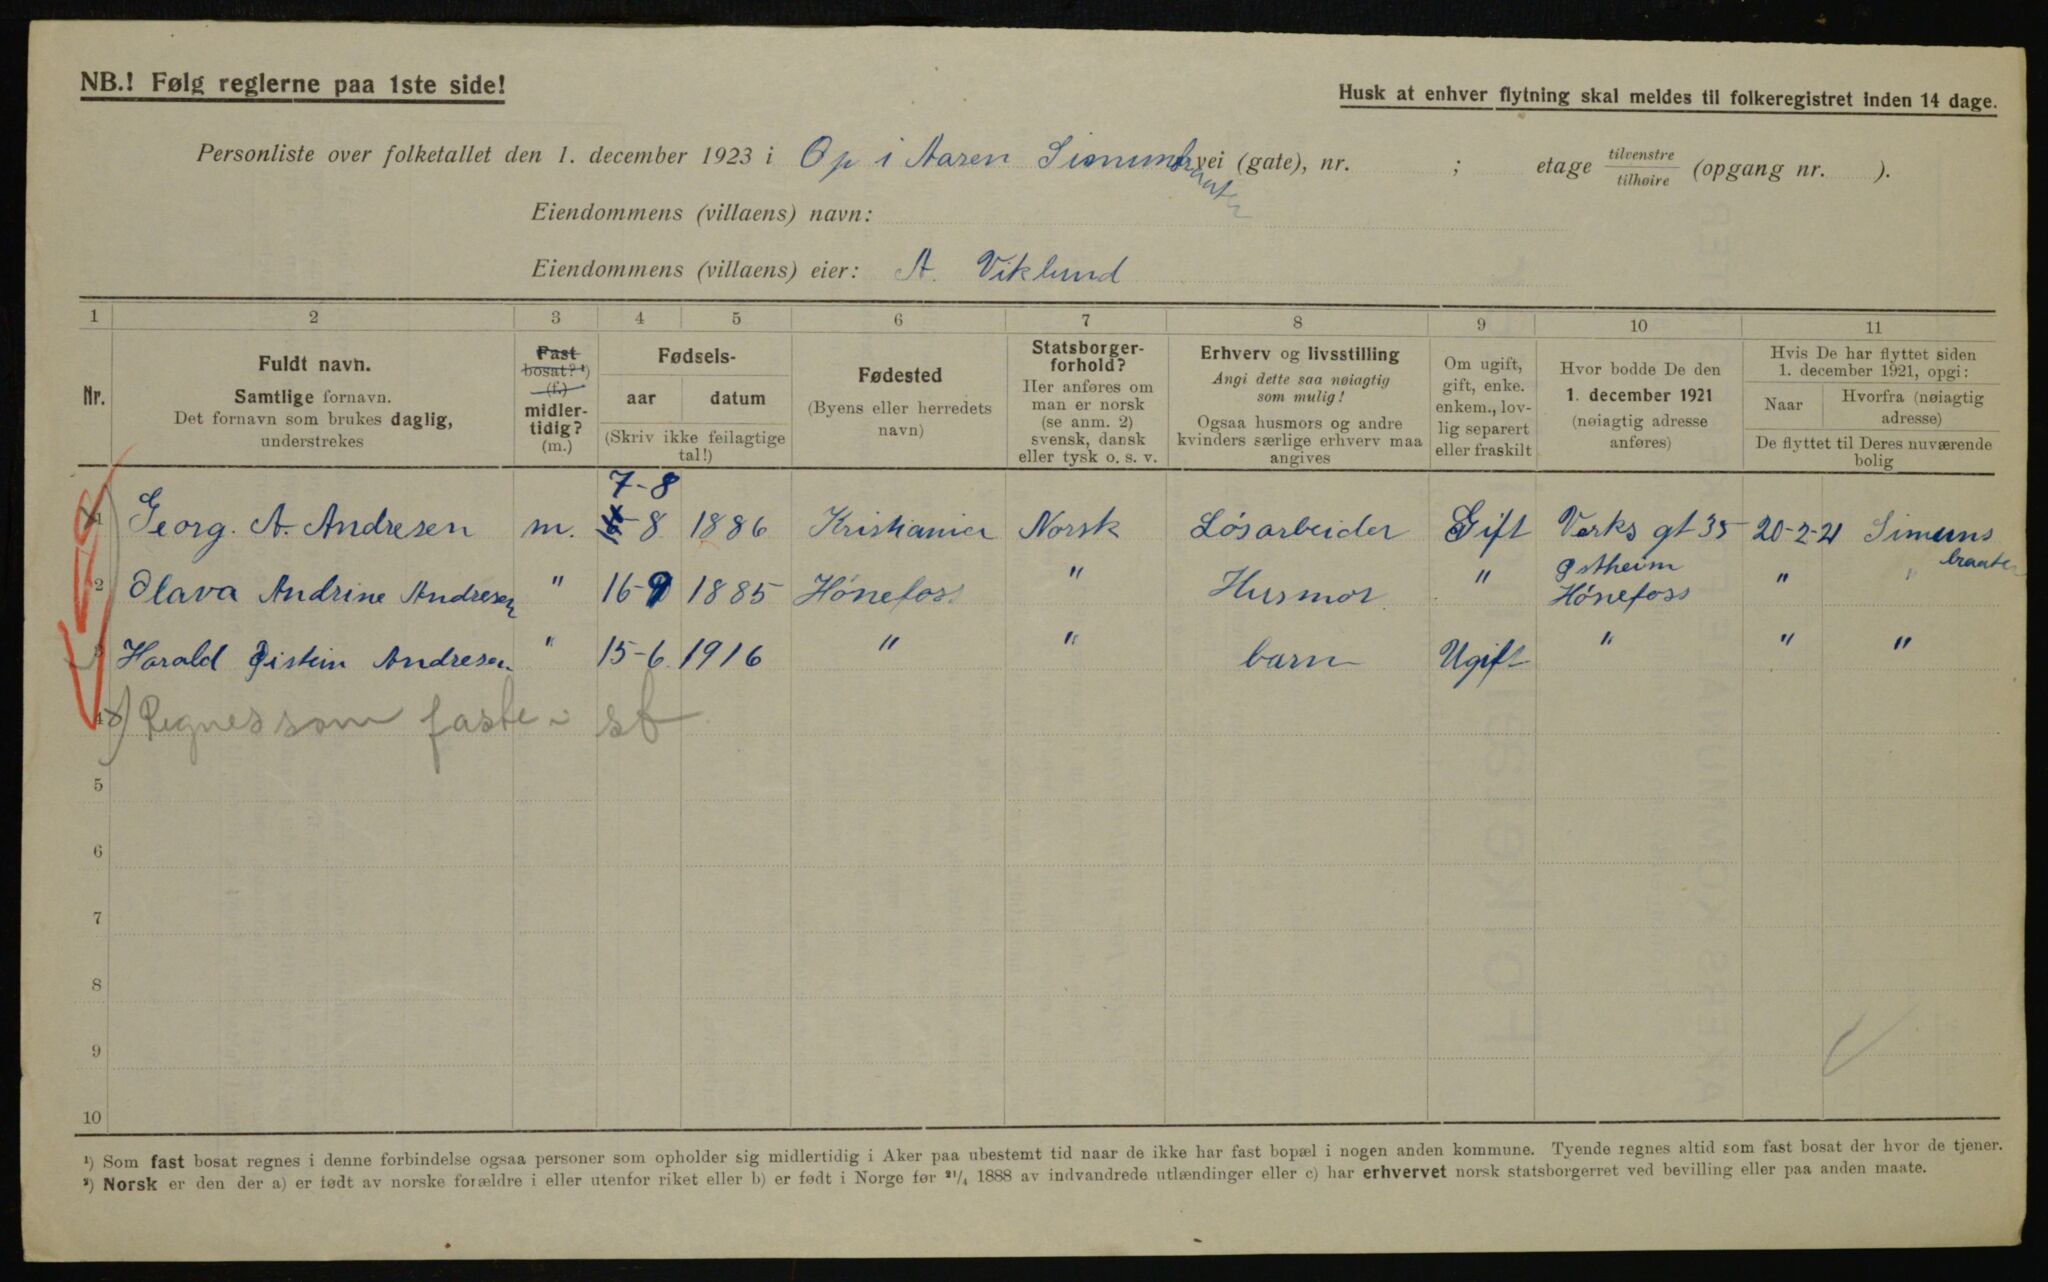 NB.! Følg reglerne paa 1ste side!
Husk at enhver flytning skal meldes til folkeregistret inden 14 dage.
Personliste over folketallet den 1. december 1923 i Op i Aaren Simunsbraaten vei (gate), nr. ; etage tilvenstre/tilhøire (opgang nr. ).
Eiendommens (villaens) navn:
Eiendommens (villaens) eier: A. Viklund
1 2 3 4 5 6 7 8 9 10 11
Nr.
Fuldt navn.
Samtlige fornavn.
Det fornavn som brukes daglig,
understrekes
Fast
bosat? ¹)
(f.)
midler-
tidig?
(m.)
Fødsels-
aar datum
(Skriv ikke feilagtige
tal!)
Fødested
(Byens eller herredets
navn)
Statsborger-
forhold?
Her anføres om
man er norsk
(se anm. 2)
svensk, dansk
eller tysk o. s. v.
Erhverv og livsstilling
Angi dette saa nøiagtig
som mulig!
Ogsaa husmors og andre
kvinders særlige erhverv maa
angives
Om ugift,
gift, enke.
enkem., lov-
lig separert
eller fraskilt
Hvor bodde De den
1. december 1921
(nøiagtig adresse
anføres)
Hvis De har flyttet siden
1. december 1921, opgi:
Naar Hvorfra (nøiagtig
adresse)
De flyttet til Deres nuværende
bolig
7-8
1 Georg. A. Andresen m. 6-8 1886 Kristiania Norsk Løsarbeider Gift Verks gt 35 20-2-21 Simuns
braaten
Østheim
2 Olava Andrine Andresen " 16-9 1885 Hønefoss " Husmor " Hønefoss " "
3 Harald Øistein Andresen " 15-6 1916 " " barn Ugift " " "
4 x) Regnes som faste - st
5
6
7
8
9
10
¹) Som fast bosat regnes i denne forbindelse ogsaa personer som opholder sig midlertidig i Aker paa ubestemt tid naar de ikke har fast bopæl i nogen anden kommune. Tyende regnes altid som fast bosat der hvor de tjener.
²) Norsk er den der a) er født av norske forældre i eller utenfor riket eller b) er født i Norge før ²¹/₄ 1888 av indvandrede utlændinger eller c) har erhvervet norsk statsborgerret ved bevilling eller paa anden maate.